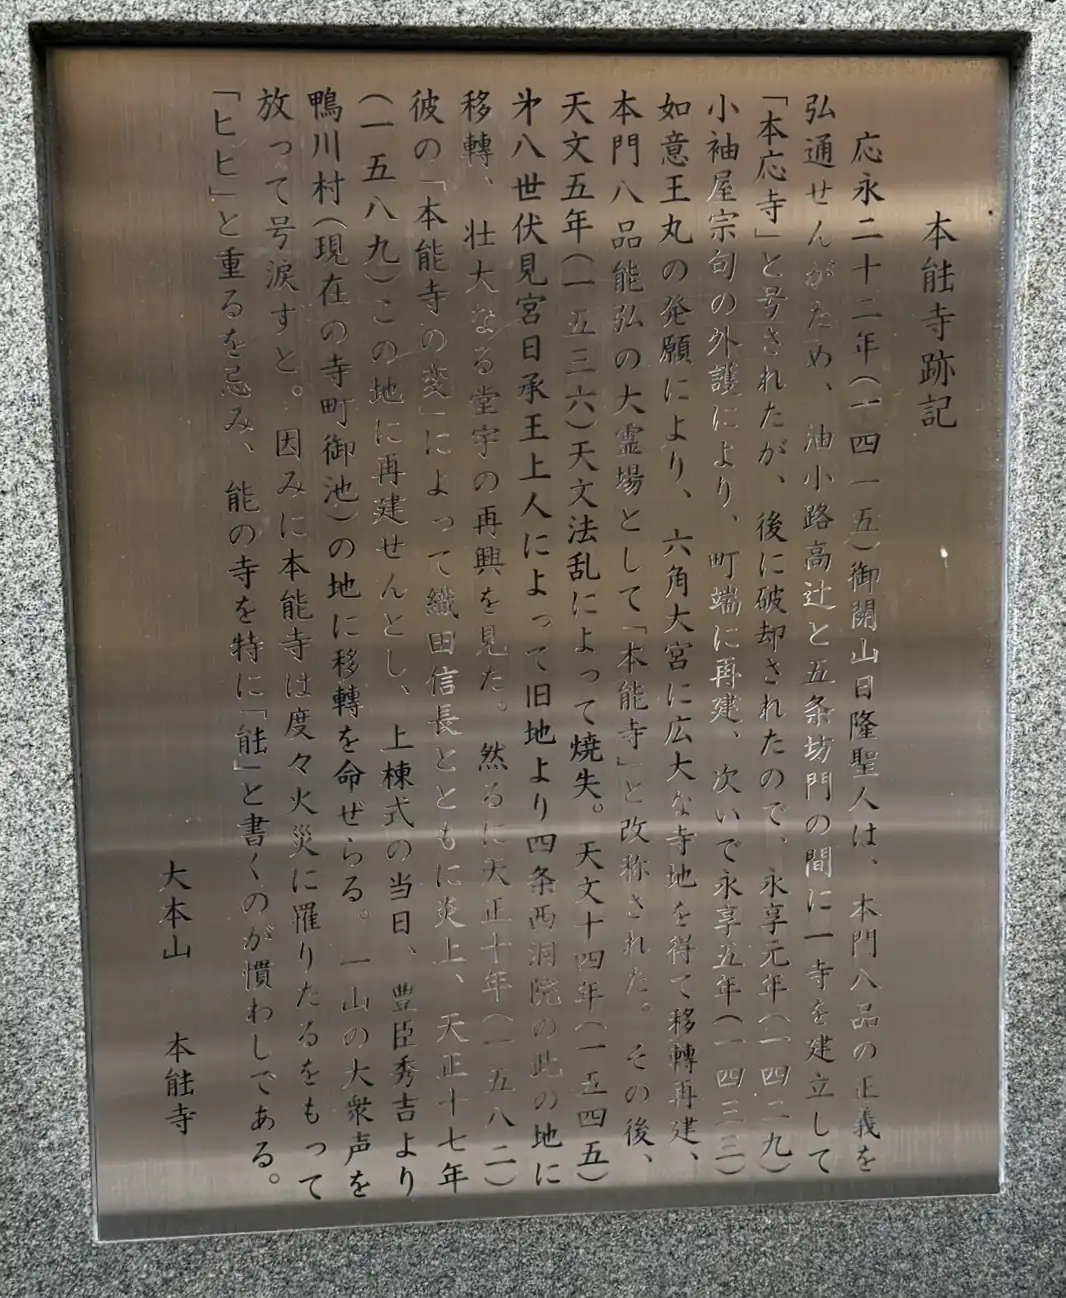 本能寺跡記
応永二十二年(一四一五)御開山日隆聖人は、本門八品の正義を
弘通せんがため、油小路高辻と五条坊門の間に一寺を建立して
「本応寺」と号されたが、後に破却されたので、永享元年(一四二九)
小袖屋宗句の外護により、町端に再建、次いで永享五年(一四三三)
如意王丸の発願により、六角大宮に広大な寺地を得て移轉再建、
本門八品能弘の大霊場として「本能寺」と改称された。その後、
天文五年(一五三六)天文法乱によって焼失。天文十四年(一五四五)
㐧八世伏見宮日承王上人によって旧地より四条西洞院の此の地に
移轉、壮大なる堂宇の再興を見た。然るに天正十年(一五八二)
彼の「本能寺の変」によって織田信長とともに炎上、天正十七年
(一五八九)この地に再建せんとし、上棟式の当日、豊臣秀吉より
鴨川村(現在の寺町御池)の地に移轉を命ぜらる。一山の大衆声を
放って号涙すと。因みに本能寺は度々火災に罹りたるをもって
「ヒヒ」と重るを忌み、能の寺を特に「䏻」と書くのが慣わしである。
大本山 本䏻寺